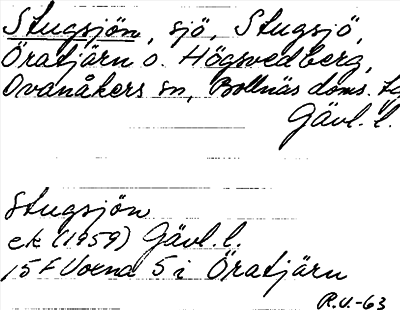 Stugsjön, sjö, Stugsjö,
Öratjärn o. Högsvedberg,
Ovanåkers sn, Bollnäs doms. tg
Gävl. l.
Stugsjön
ek (1959) Gävl. l.
15 F Voxna 5 i Öratjärn
R.U.-63